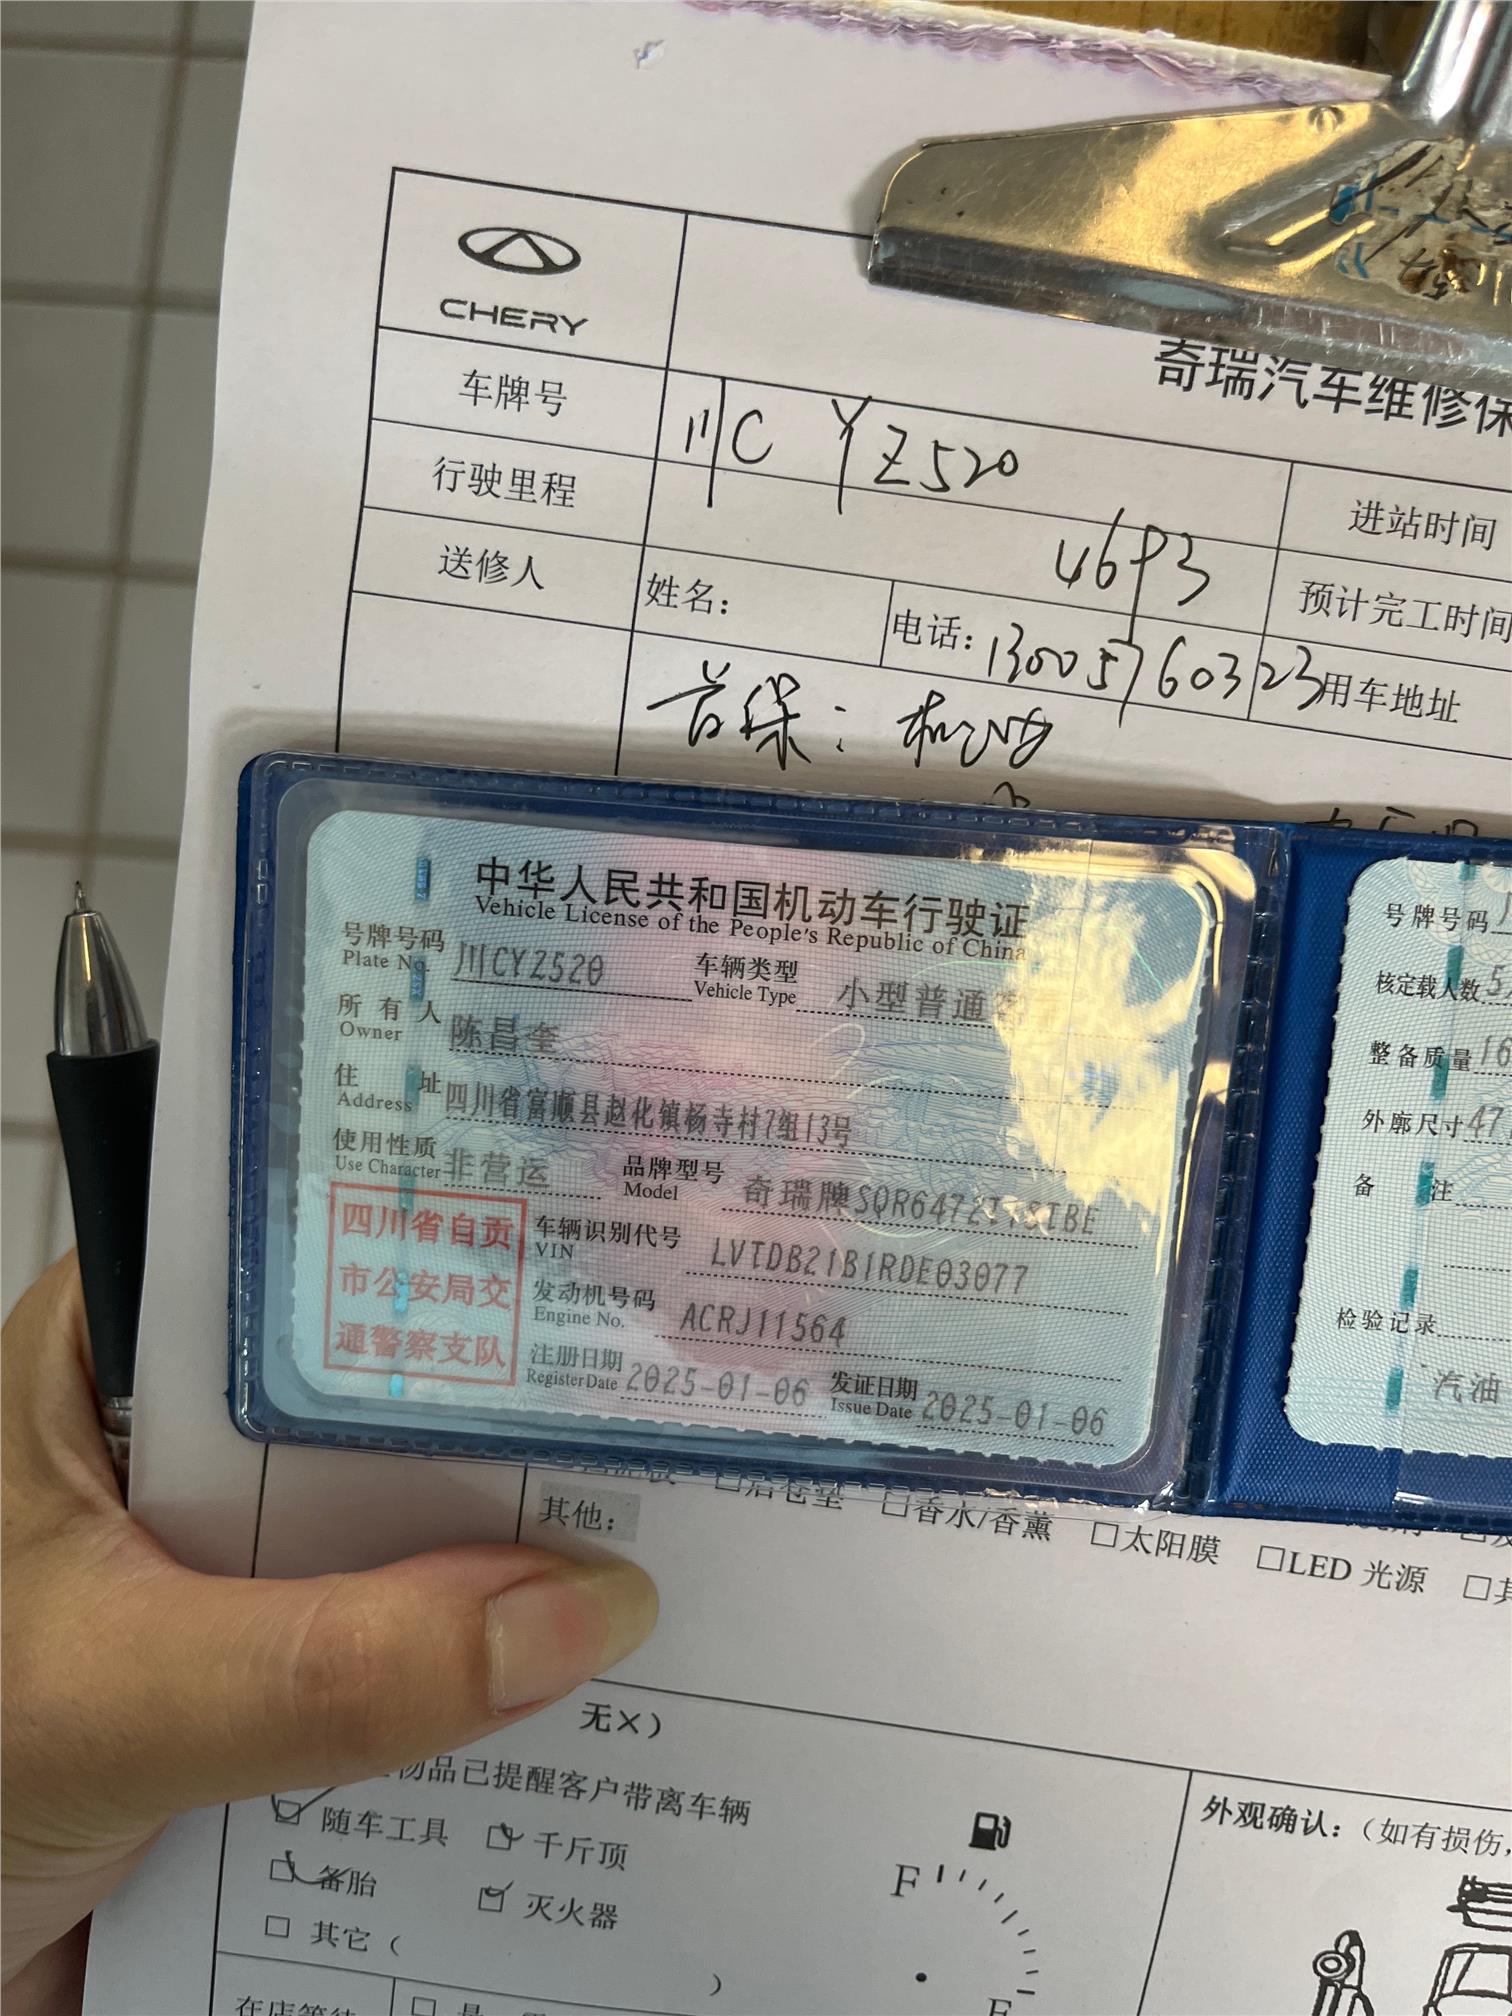 CHERY
奇瑞汽车维修保
车牌号 川C YZ520 进站时间
行驶里程 4693 预计完工时间
送修人 姓名： 电话：13005760323 用车地址
首保：机油
中华人民共和国机动车行驶证
Vehicle License of the People's Republic of China
号牌号码 川CYZ520 车辆类型 小型普通
Plate No. Vehicle Type
所有人 陈昌奎
Owner
住址 四川省富顺县赵化镇杨寺村7组13号
Address
使用性质 非营运 品牌型号 奇瑞牌
Use Character Model
四川省自贡
市公安局交
通警察支队
车辆识别代号 LVTDB21B1RDE03077
VIN
发动机号码 ACRJ11564
Engine No.
注册日期 2025-01-06 发证日期 2025-01-06
Register Date Issue Date
号牌号码
核定载人数 5
整备质量 16
外廓尺寸 47
备注
检验记录
汽油
□香水/香薰 □太阳膜 □LED 光源
其他：
无×）
物品已提醒客户带离车辆
随车工具 千斤顶
备胎 灭火器
□ 其它（ ）
F
外观确认：（如有损伤，
在店等待 □是